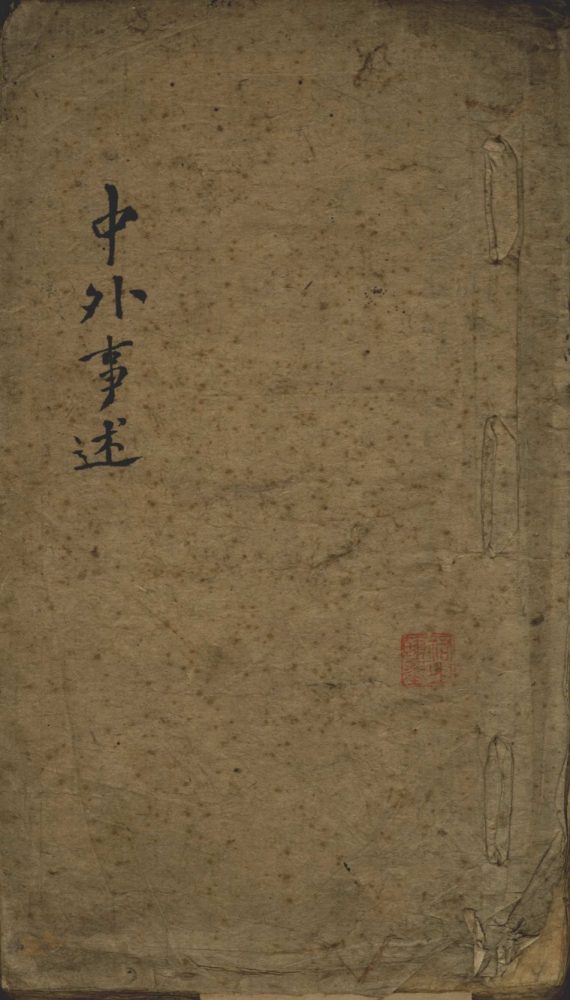 中外事述